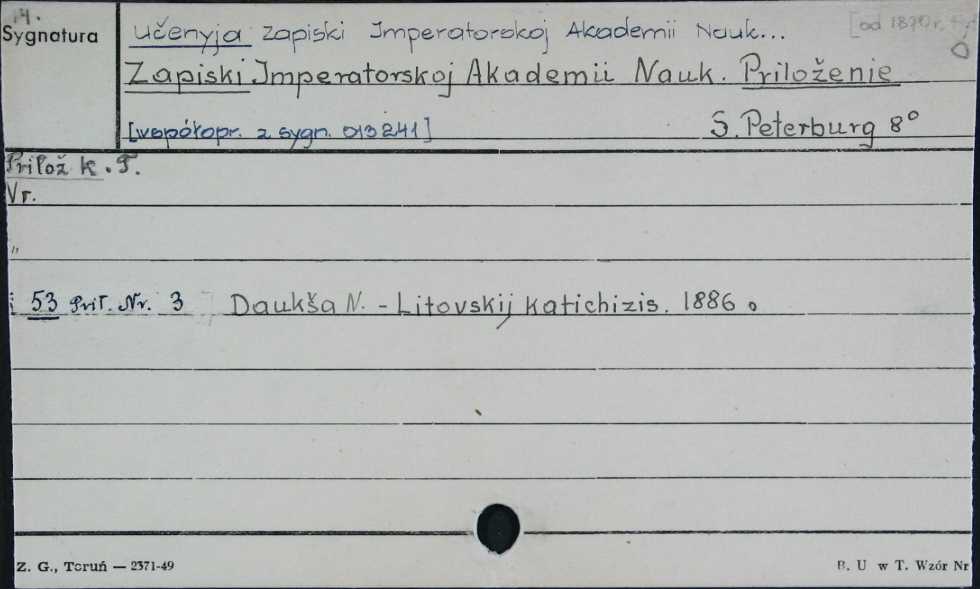 14.
Sygnatura
Učenyja Zapiski Imperatorskoj Akademii Nauk...
[od 1870 r.
Zapiski Imperatorskoj Akademii Nauk. Priloženie
[współopr. z sygn. 013241]
S. Peterburg 8°
Prilož k. T.
Nr.
"
53 Pril. Nr. 3 Daukša N. - Litovskij katichizis. 1886.
Z. G., Toruń — 2371-49
B. U w T. Wzór Nr